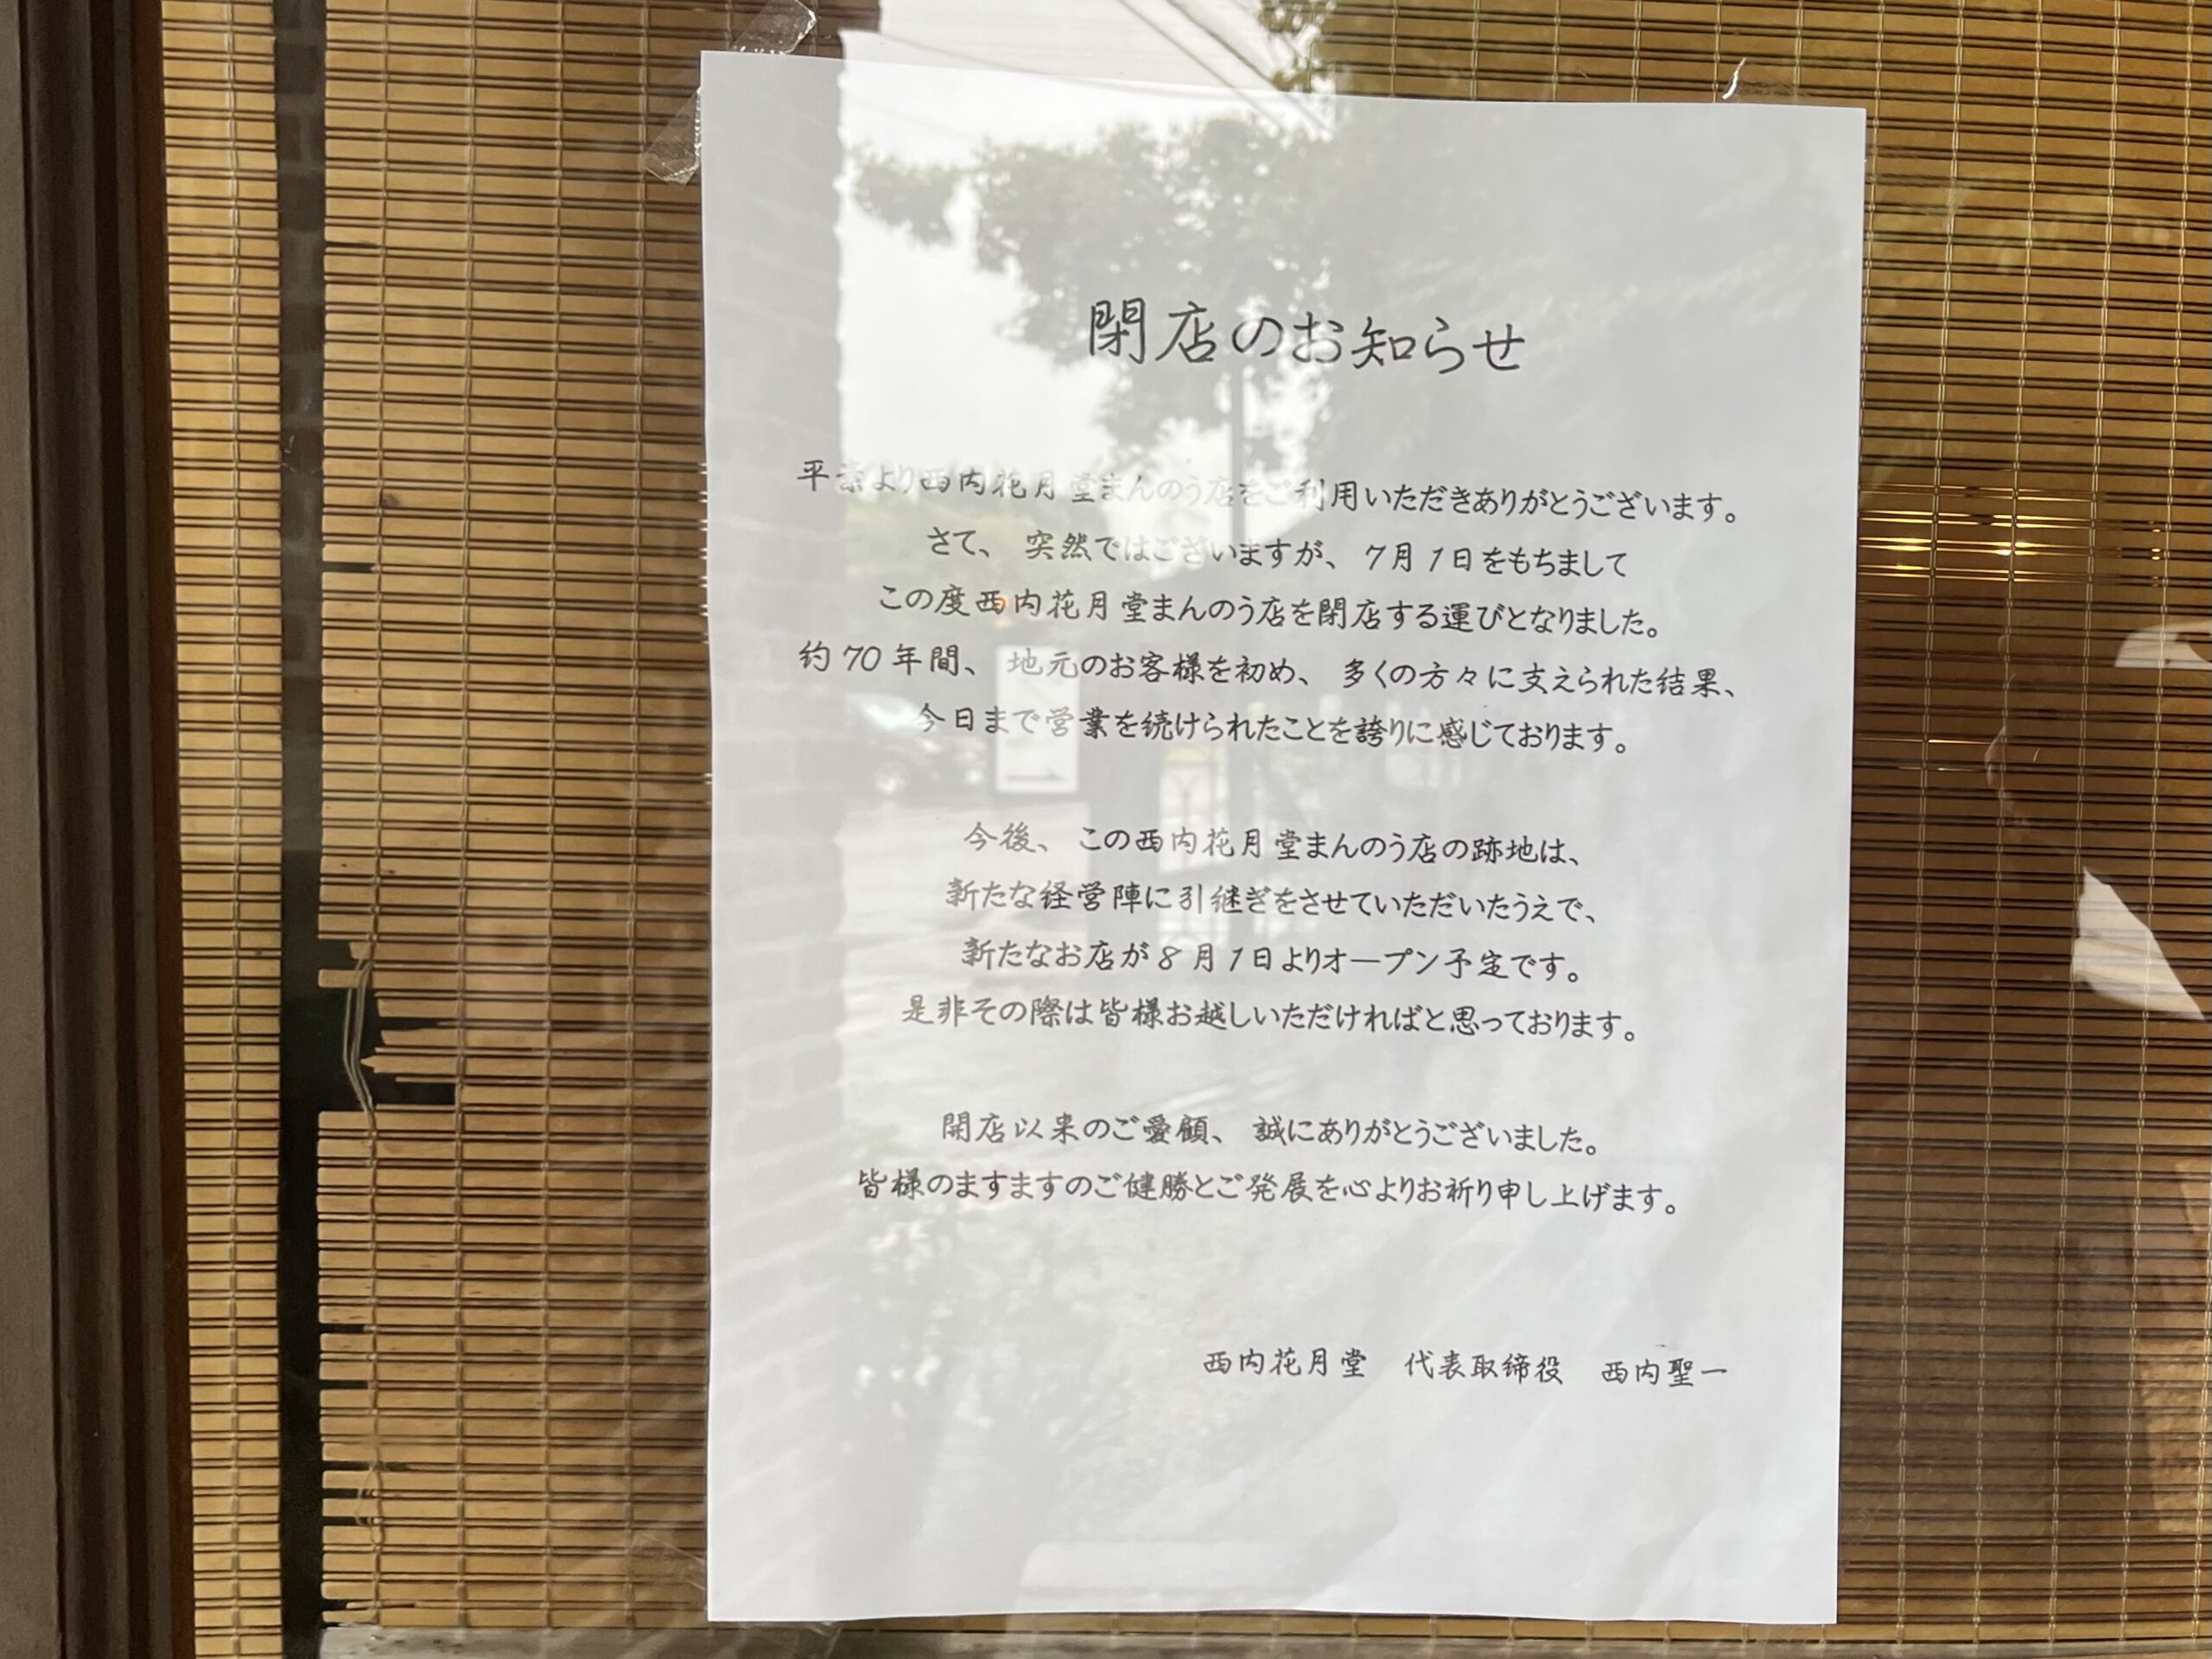 閉店のお知らせ
平素より西内花月堂まんのう店をご利用いただきありがとうございます。
さて、突然ではございますが、7月1日をもちまして
この度西内花月堂まんのう店を閉店する運びとなりました。
約70年間、地元のお客様を初め、多くの方々に支えられた結果、
今日まで営業を続けられたことを誇りに感じております。
今後、この西内花月堂まんのう店の跡地は、
新たな経営陣に引継ぎをさせていただいたうえで、
新たなお店が8月1日よりオープン予定です。
是非その際は皆様お越しいただければと思っております。
開店以来のご愛顧、誠にありがとうございました。
皆様のますますのご健勝とご発展を心よりお祈り申し上げます。
西内花月堂 代表取締役 西内聖一